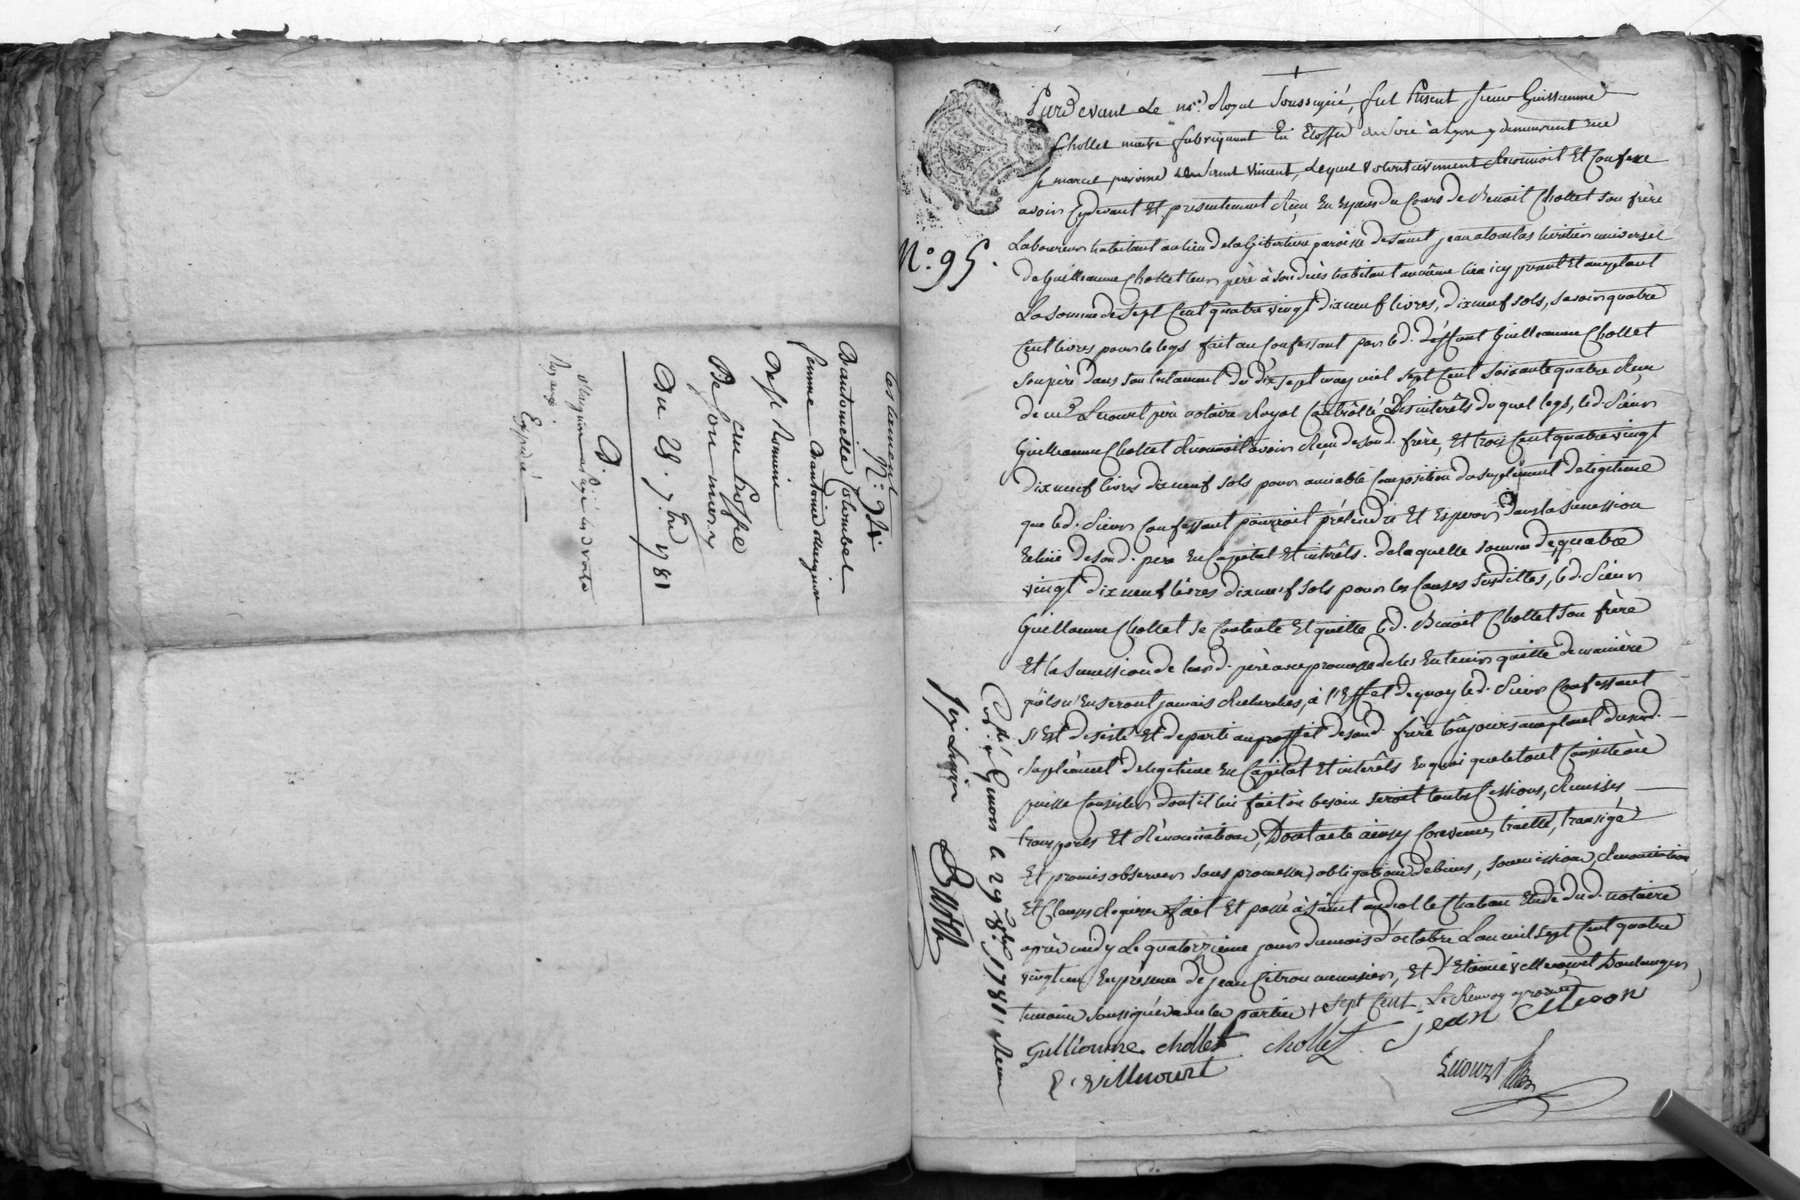 testament
N.° 94
D'antoinette Colombet
femme D'antoine
De St Romain
en
Du 28. 7bre 1781
D.
Expedié
N.° 95.
Pardevant Le no.re Royal Soussigné, fut Present sieur Guillaume
Chollet maitre fabriquant En Etoffes de soie à Lyon y demeurant rue
St marcel paroisse de Saint Vincent, Lequel volontairement Reconnoit Et Confesse
avoir Cydevant Et presentement Reçu En Especes du Cours de Benoit Chollet Son frère
Laboureur habitant au lieu de la paroisse de Saint jean heritier universel
de Guilleaume Chollet leur père à Son deces habitant au même lieu icy présent Et acceptant
La Somme de Sept Cent quatre vingt dix neuf livres, dix neuf Sols, Savoir quatre
Cent livres pour le legs fait au Confessant par led. deffunt Guilleaume Chollet
Son père dans Son testament du dix Sept may mil Sept Cent Soixante quatre Reçu
de me. père notaire Royal Contrôllé Les interêts du quel legs, led. Sieur
Guilleaume Chollet Reconnoit avoir Reçu de Sond. frère, Et trois Cent quatre vingt
dix neuf livres dix neuf Sols pour amiable Composition du Suplément de legitime
que led. Sieur Confessant pourroit prétendre Et Esperer dans la Succession
de Sond. père En Capital Et interêts. de laquelle Somme de quatre
vingt dix neuf livres dix neuf Sols pour les Causes Susdittes, led. Sieur
Guilleaume Chollet Se Contente Et quitte led. Benoit Chollet Son frère
Et la Succession de leurd. père avec promesse de les En tenir quitte de manière
qu'ils n'En Seront jamais Recherchés, à l'Effet de quoy led. Sieur Confessant
S'Est desisté Et departi au proffit de Sond. frère toujours acceptant dud.
Suplément de legitime En Capital Et interêts En quoi que le tout Consiste où
puisse Consister dont il lui fait où besoin Seroit toutes Cessions, Remises
transports Et Rénonciations, Dont acte ainsy Convenu, traitté, transigé
Et promis observer Sous promesses, obligations de biens, Soumissions, Renonciations
Et Clauses Requises fait Et passé à Saint andéol le Chateau Etude dud. notaire
après midy Le quatorzieme jour du mois d'octobre L'an mil Sept Cent quatre
vingt un En présence de jean Citron meunier, Et d'Etienne Villecourt Boulanger
temoins Soussignés avec les parties + Sept Cent. Le Renvoy aprouvé
Gulliaume chollet chollet jean Citron
E. villecourt
Cont.lé à Givors le 29. 8bre 1781. Reçu